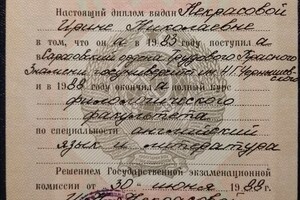 Настоящий диплом выдан Некрасовой
Ирине Николаевне
в том, что она в 1983 году поступила в
Саратовский ордена Трудового Красного
Знамени госуниверситет им. Н.Г. Чернышев-
ского
и в 1988 году окончила полный курс
филологического
факультета
по специальности английский
язык и литература
Решением Государственной экзаменационной
комиссии от 30 июня 1988 г.
Некрасовой